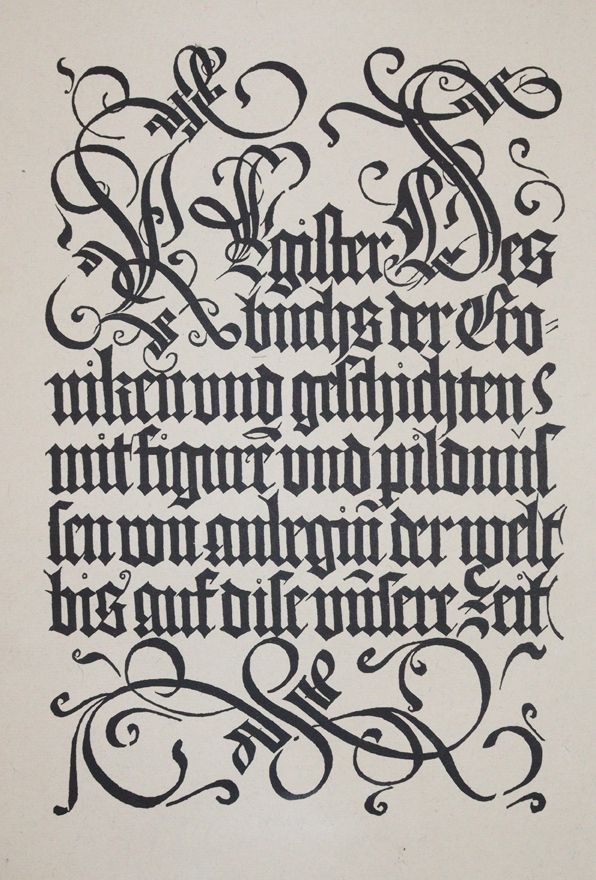 REgiſter Des
buchs der Cro=
niken vnd geſchichten
mit figurē vnd pildnuſ
ſen von anbegiñ der welt
bis auf diſe vñſere Zeit